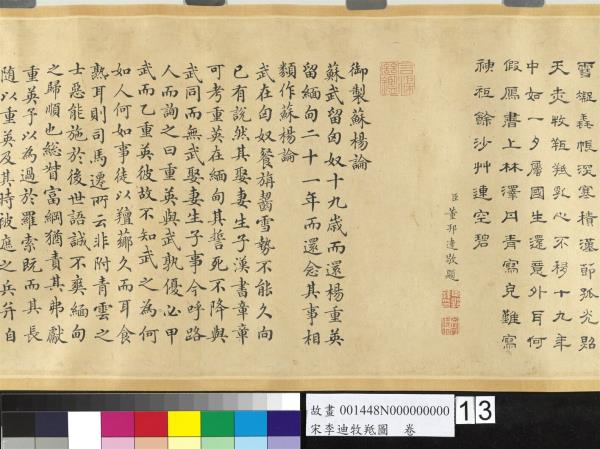 雪撥毳帳深寒積漢節孤光照
天壺牧羝羝乳心不移十九年
中如一夕屬國生還意外耳何
假雁書上林澤丹青寫皃難寫
神祖餘沙艸連空碧
臣董邦達敬題
御製蘇楊論
蘇武留匈奴十九歲而還楊重英
留緬甸二十一年而還念其事相
類作蘇楊論
武在匈奴餐旃齧雪勢不能久向
已有說然其娶妻生子漢書章章
可考重英在緬甸其誓死不降與
武同而無武娶妻生子事今呼路
人而詢之曰重英與武孰優必甲
武而乙重英彼故不知武之為何
如人何如事徒以羶薌久而耳食
熟耳則司馬遷所云非附青雲之
士惡能施於後世語誠不爽緬甸
之歸順也總督富綱猶責其弗獻
重英予以為過於羅索既而其長
隨以重英及其時被底之兵并自
故畫 001448N000000000
宋李迪牧羝圖 卷
13